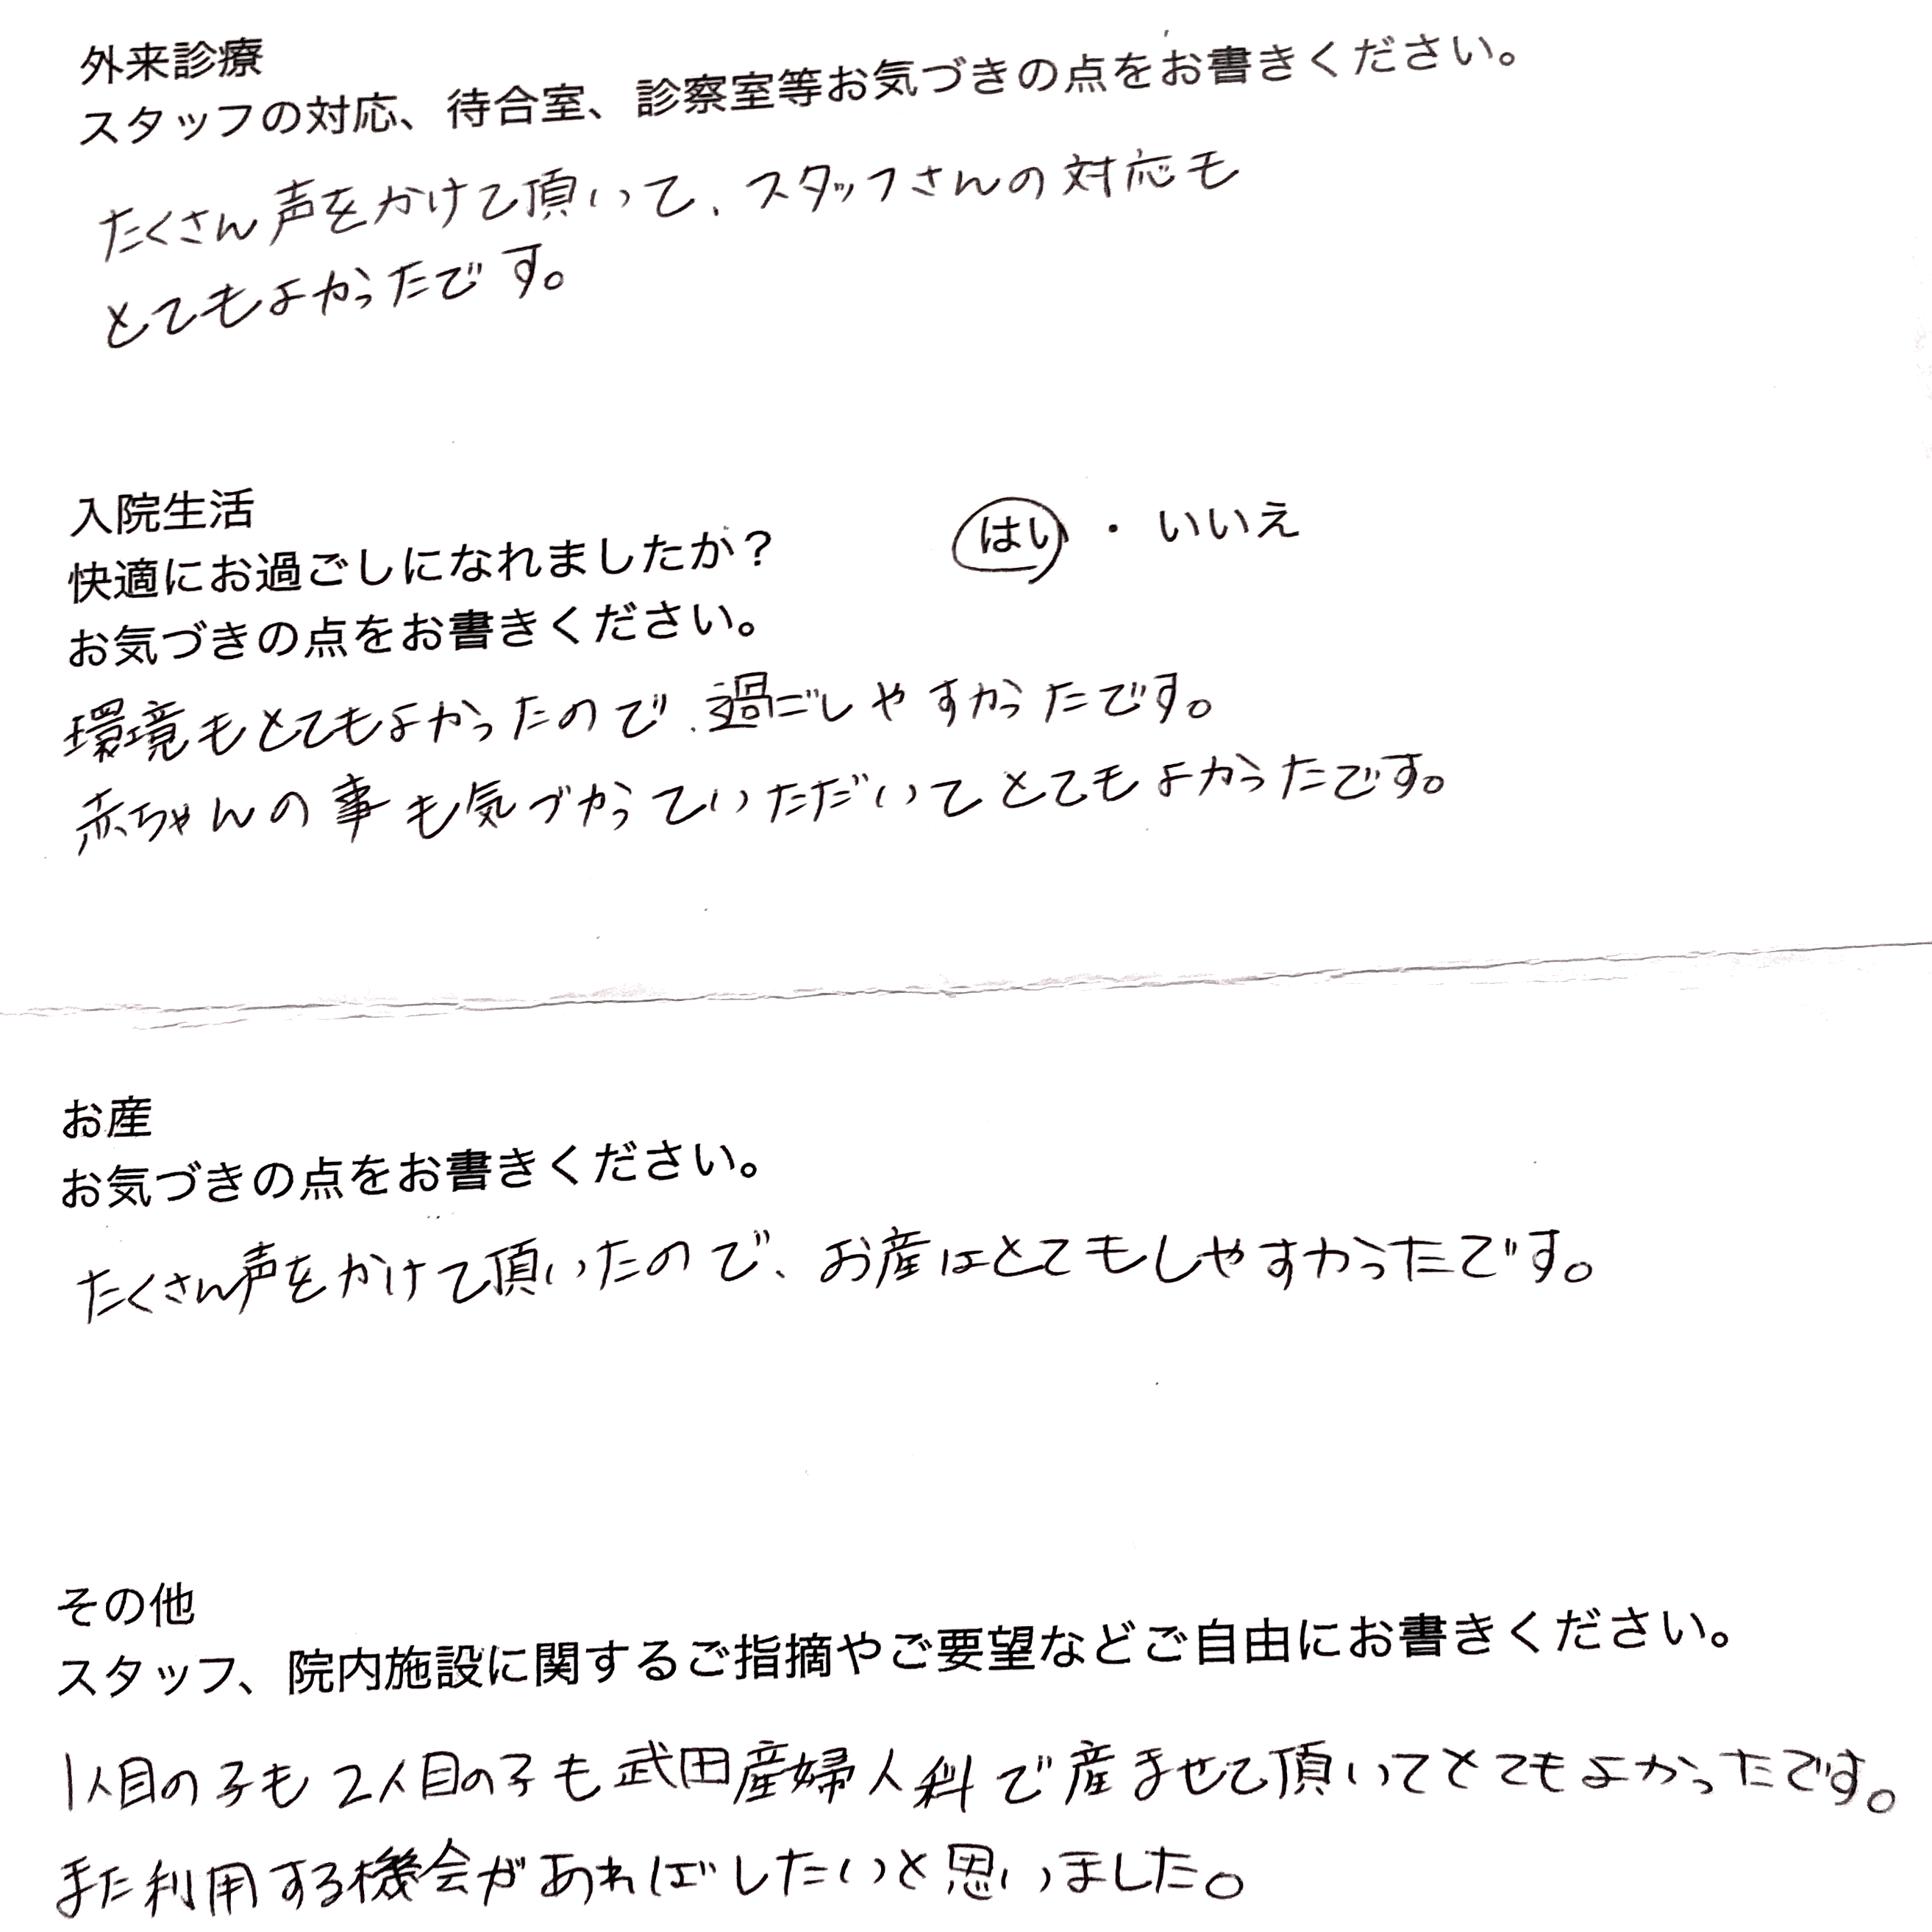 外来診療
スタッフの対応、待合室、診察室等お気づきの点をお書きください。
たくさん声をかけて頂いて、スタッフさんの対応も
とてもよかったです。
入院生活
快適にお過ごしになれましたか？ はい ・ いいえ
お気づきの点をお書きください。
環境もとてもよかったので、過ごしやすかったです。
赤ちゃんの事も気づかっていただいてとてもよかったです。
お産
お気づきの点をお書きください。
たくさん声をかけて頂いたので、お産はとてもしやすかったです。
その他
スタッフ、院内施設に関するご指摘やご要望などご自由にお書きください。
1人目の子も2人目の子も武田産婦人科で産ませて頂いてとてもよかったです。
また利用する機会があればしたいと思いました。